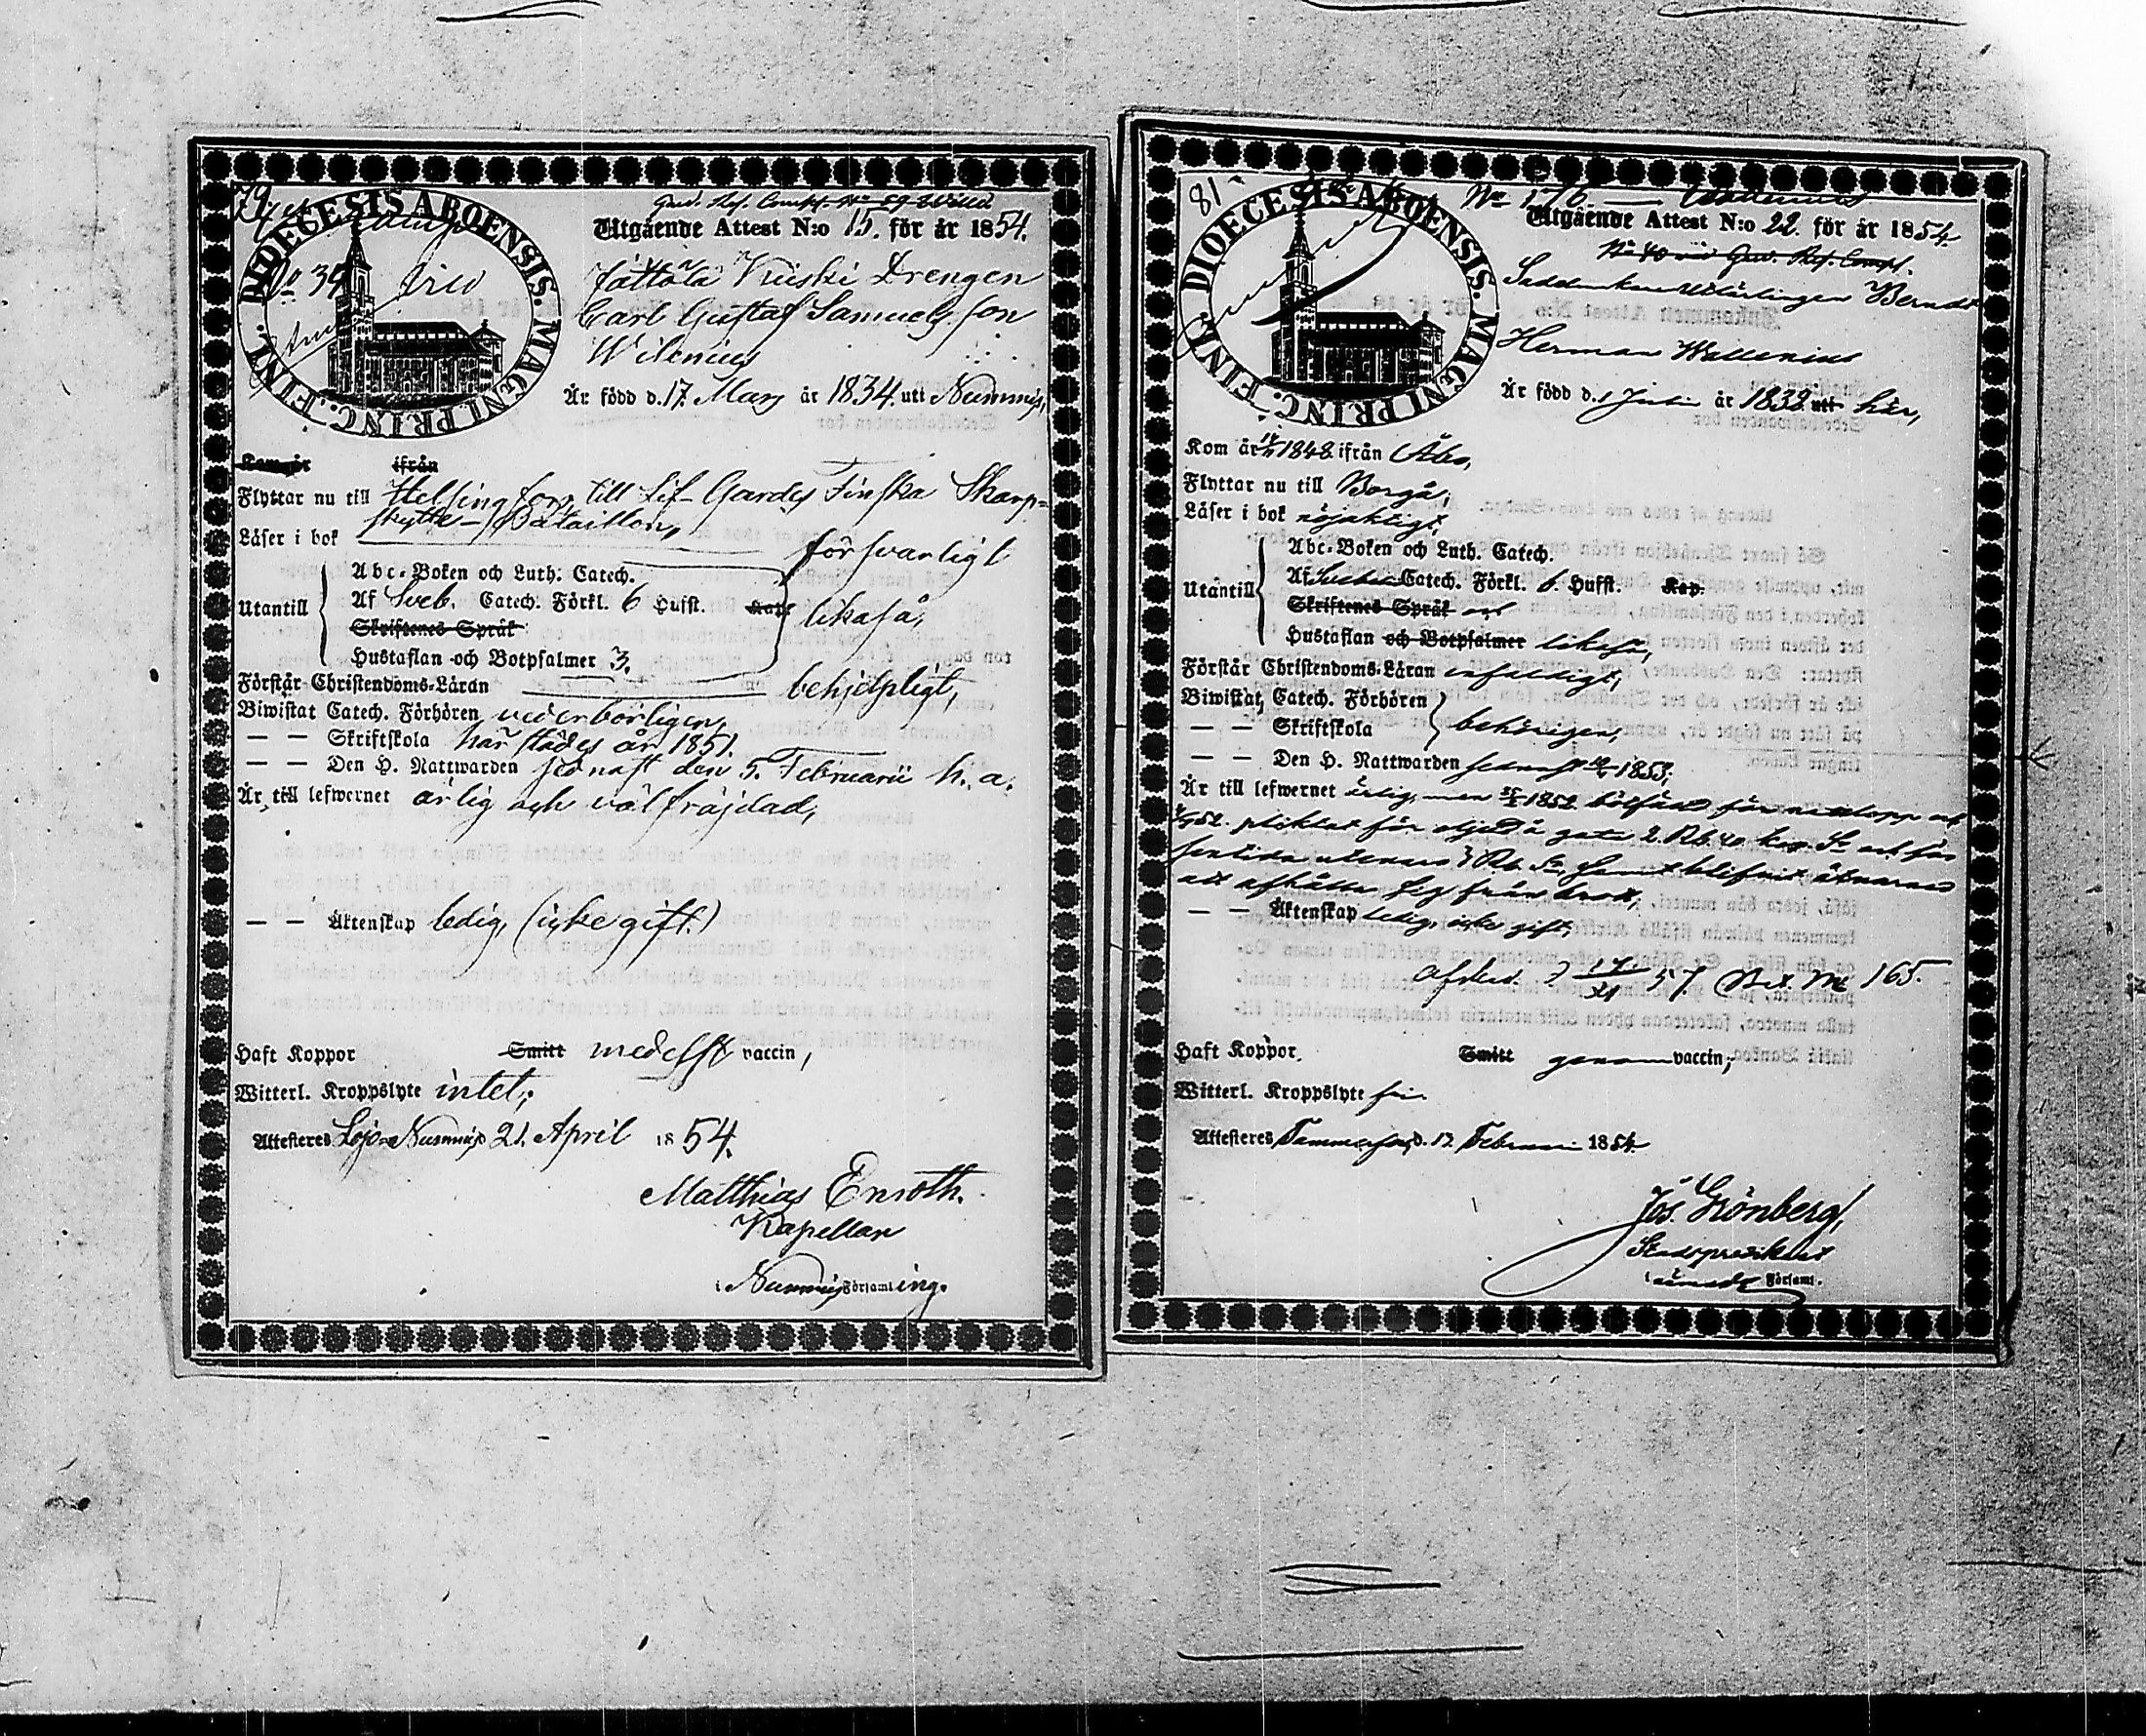 79
DIOECESIS ABOENSIS. MAGNI PRINC. FINL.
No 34
Gard. Ref. Comp.
Utgående Attest N:o 15. för år 1854.
Jättölä Kuiski Drengen
Carl Gustaf Samuelsson
Wilenius
Är född d. 17. Mars år 1834. uti Nummis,
Kom år ifrån
Flyttar nu till Helsingfors, till Lif-Gardes Finska Skarp=
skytte-Bataillon,
Läser i bok försvarligt
Utantill
Abc-Boken och Luth: Catech.
Af Sveb. Catech. Förkl. 6 Hufst. Kap. likaså,
Skriftenes Språk
Hustaflan och Botpsalmer 3.
Förstår Christendoms-Läran behjelpligt,
Biwistat Catech. Förhören vederbörligen,
— — Skriftskola härstädes år 1851.
— — Den H. Nattwarden sednast den 5. Februarii h. a.
Är till lefwernet ärlig och välfräjdad,
— — Äktenskap ledig, (icke gift.)
Haft Koppor Smitt medelst vaccin,
Witterl. Kroppslyte intet;
Attesteres Lojo-Nummis 21. April 1854.
Matthias Enroth.
Kapellan
i Nummis Församling.
81
No 176
DIOECESIS ABOENSIS. MAGNI PRINC. FINL.
Utgående Attest N:o 22. för år 1854.
No 40 vid Gard. Ref. Comp.
Berndt
Herman Wallenius
Är född d. 1 Juli år 1832. uti här,
Kom år 1848 ifrån Åbo,
Flyttar nu till Borgå,
Läser i bok nöjaktigt,
Utantill
Abc-Boken och Luth. Catech.
Af Svebel. Catech. Förkl. 6. Hufst. Kap.
Skriftenes Språk och
Hustaflan och Botpsalmer likaså,
Förstår Christendoms-Läran enfaldigt,
Biwistat Catech. Förhören
— — Skriftskola behörigen,
— — Den H. Nattwarden sednast 1853;
Är till lefwernet ärlig, men 1852 bötfäld för
1852. pliktat för å gata 2 Rb. 40 kop. Sr och för
Rb. Sr, samt blifvit åtvarnad
att afhålla sig från brott,
— — Äktenskap ledig, icke gift,
Afsked. d 17/XI 57 Bet. No 165.
Haft Koppor, Smitt genom vaccin,
Witterl. Kroppslyte fri.
Attesteres Tammerfors d. 12 Februari 1854
Jos. Grönberg,
Stadspredikant
i Församl.